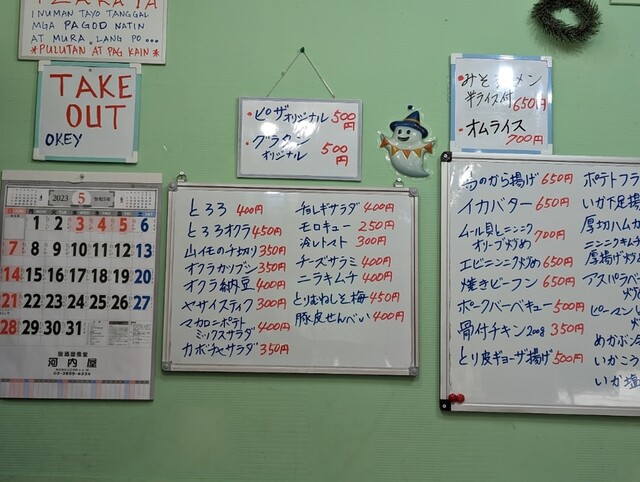 INUMAN TAYO TANGGAL
MGA PAGOD NATIN
AT MURA LANG PO...
*PULUTAN AT PAG KAIN*
TAKE
OUT
OKEY
・ピザオリジナル 500円
・グラタン
オリジナル 500円
・みそラーメン
半ライス付 650円
・オムライス
700円
2023 5
1 2 3 4 5 6
7 8 9 10 11 12 13
14 15 16 17 18 19 20
21 22 23 24 25 26 27
28 29 30 31
河内屋
とろろ 400円
とろろオクラ 450円
山イモの千切り 350円
オクラカツブシ 350円
オクラ納豆 400円
ヤサイスティク 300円
マカロニポテト
ミックスサラダ 400円
カボチャサラダ 350円
チョレギサラダ 400円
モロキュー 250円
冷しトマト 300円
チーズサラミ 400円
ニラキムチ 400円
とりはねしそ梅 450円
豚皮せんべい 400円
のから揚げ 650円
イカバター 650円
ムール貝とニンニク
オリーブ炒め 700円
エビニンニク炒め 650円
焼きビーフン 650円
ポークバーベキュー 500円
骨付チキン 200g 350円
とり皮ギョーザ揚げ 500円
ポテトフラ
いか下足揚
厚切ハムカ
ニンニクキム
厚揚げ炒め
アスパラベ
炒
ピーマン
めかぶ
いかこ
いか塩